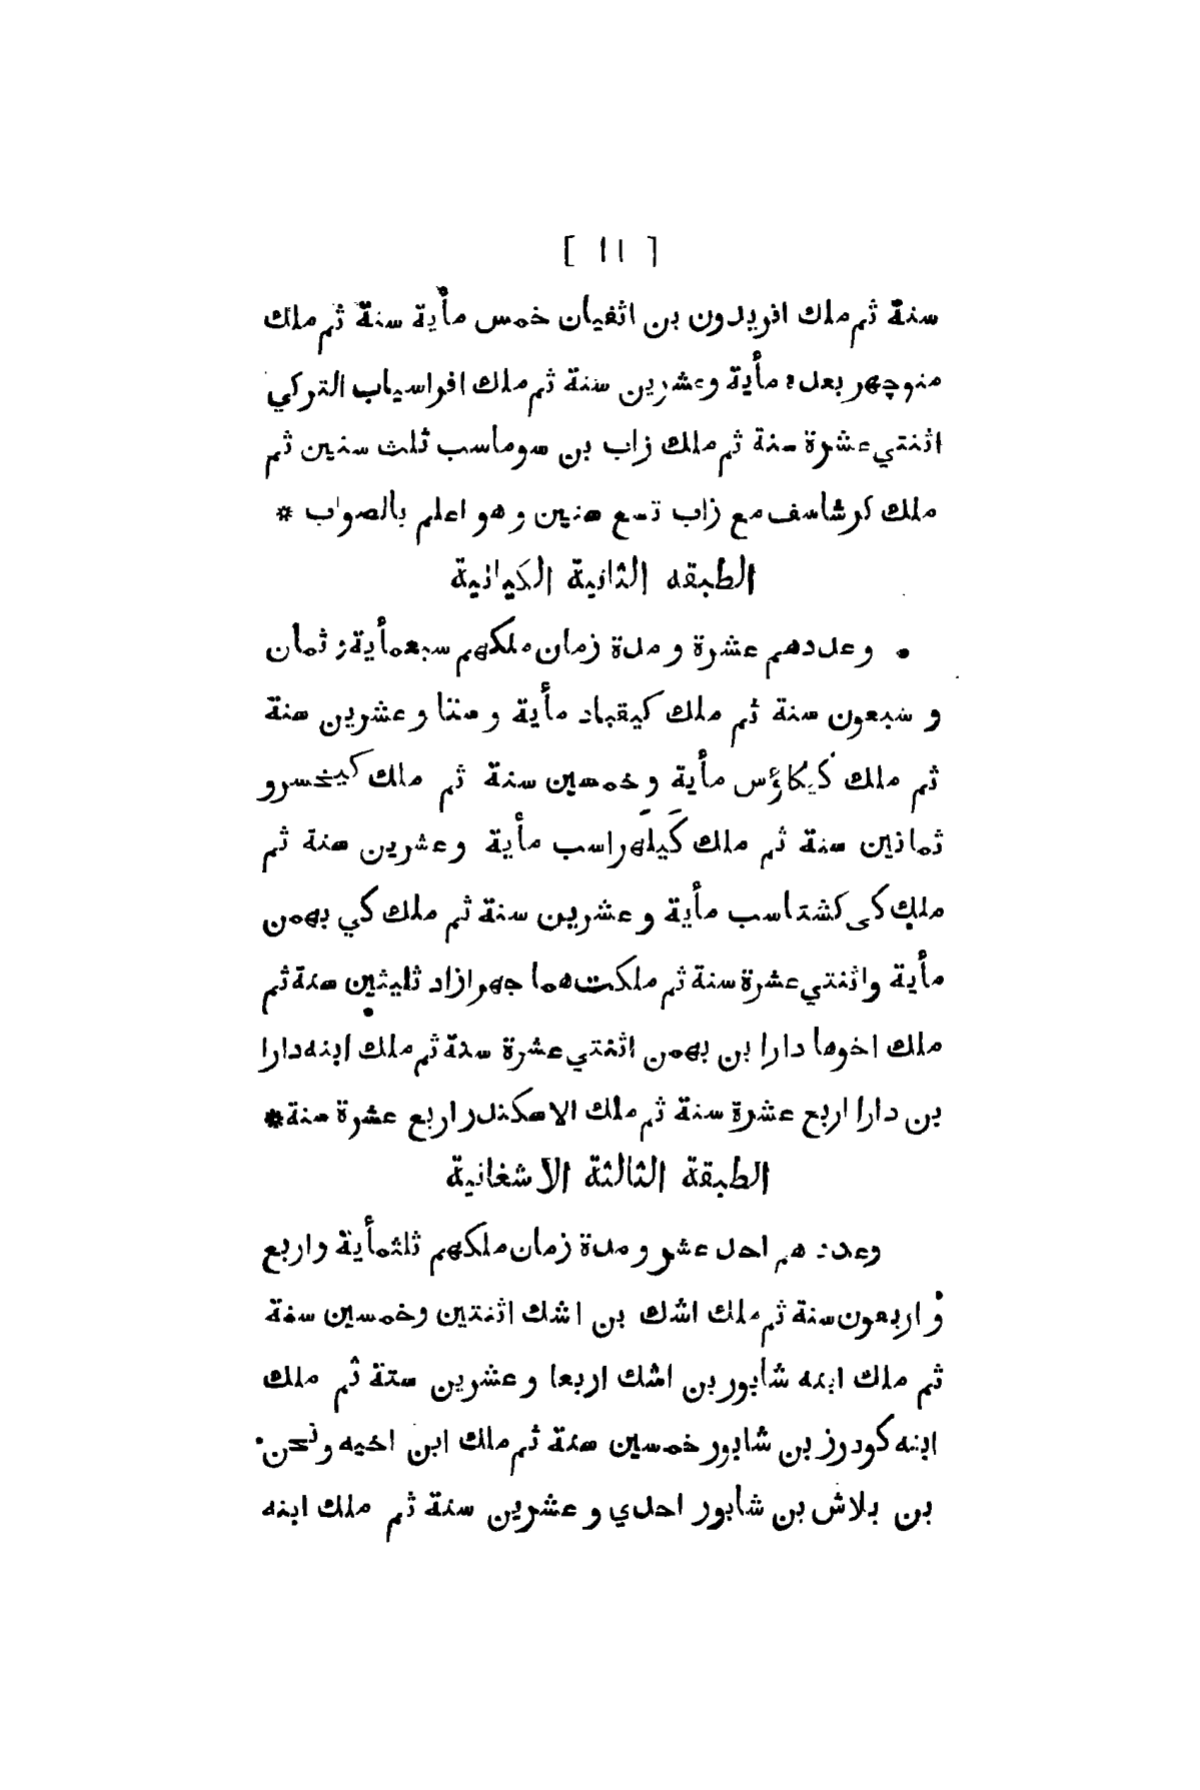 [ ١١ ]
سنة ثم ملك افريدون بن اثفيان خمس مأية سنة ثم ملك
منوچهر بعده مأية وعشرين سنة ثم ملك افراسياب التركي
اثنتي عشرة سنة ثم ملك زاب بن سوماسب ثلث سنين ثم
ملك كرشاسف مع زاب تسع سنين و هو اعلم بالصواب *
الطبقه الثانية الكيانية
• وعددهم عشرة و مدة زمان ملكهم سبعمأية ثمان
و سبعون سنة ثم ملك كيقباد مأية و ستا و عشرين سنة
ثم ملك كيكاؤس مأية و خمسين سنة ثم ملك كيخسرو
ثمانين سنة ثم ملك كَيلَهراسب مأية وعشرين سنة ثم
ملك كى كشتاسب مأية و عشرين سنة ثم ملك كي بهمن
مأية واثنتي عشرة سنة ثم ملكت هما جهر ازاد ثليثين سنة ثم
ملك اخوها دارا بن بهمن اثنتي عشرة سنة ثم ملك ابنه دارا
بن دارا اربع عشرة سنة ثم ملك الاسكندر اربع عشرة سنة *
الطبقة الثالثة الاشغانية
وعددهم احد عشر و مدة زمان ملكهم ثلثمأية واربع
و اربعون سنة ثم ملك اشك بن اشك اثنتين وخمسين سنة
ثم ملك ابنه شابور بن اشك اربعا و عشرين ستة ثم ملك
ابنه كودرز بن شابور خمسين سنة ثم ملك ابن اخيه ونحن
بن بلاش بن شابور احدي و عشرين سنة ثم ملك ابنه